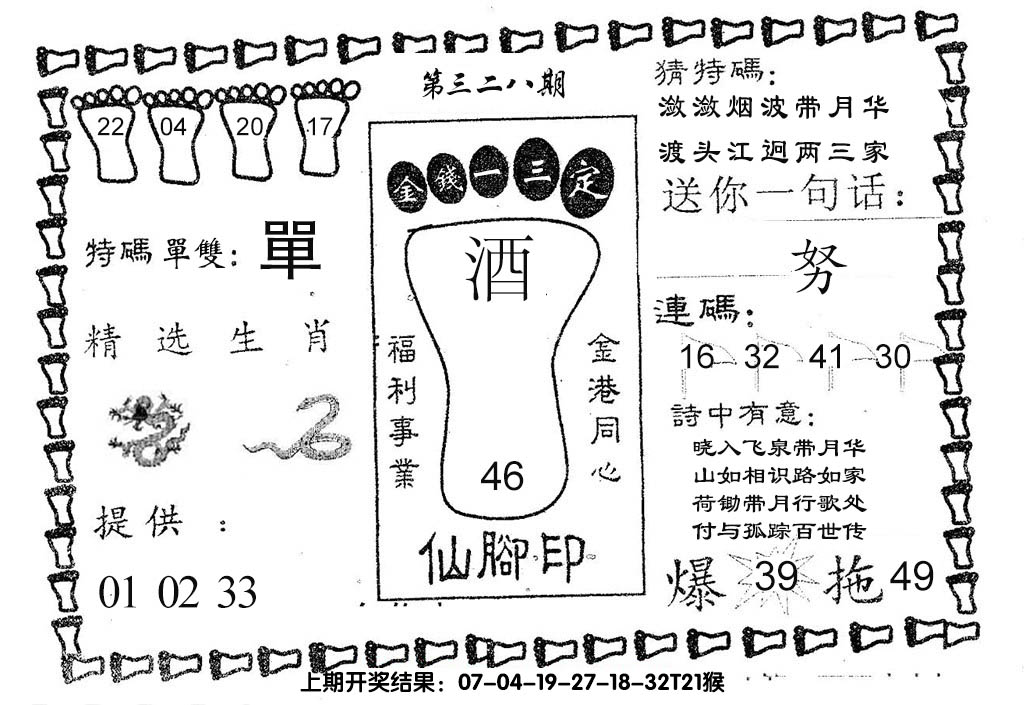 第三二八期
22 04 20 17
特碼單雙：單
精选生肖
提供：
01 02 33
金錢一三定
酒
福利事業
金港同心
46
仙腳印
猜特碼：
潋潋烟波带月华
渡头江迥两三家
送你一句话：
努
連碼：
16 32 41 30
詩中有意：
晓入飞泉带月华
山如相识路如家
荷锄带月行歌处
付与孤踪百世传
爆 39 拖 49
上期开奖结果：07-04-19-27-18-32T21猴